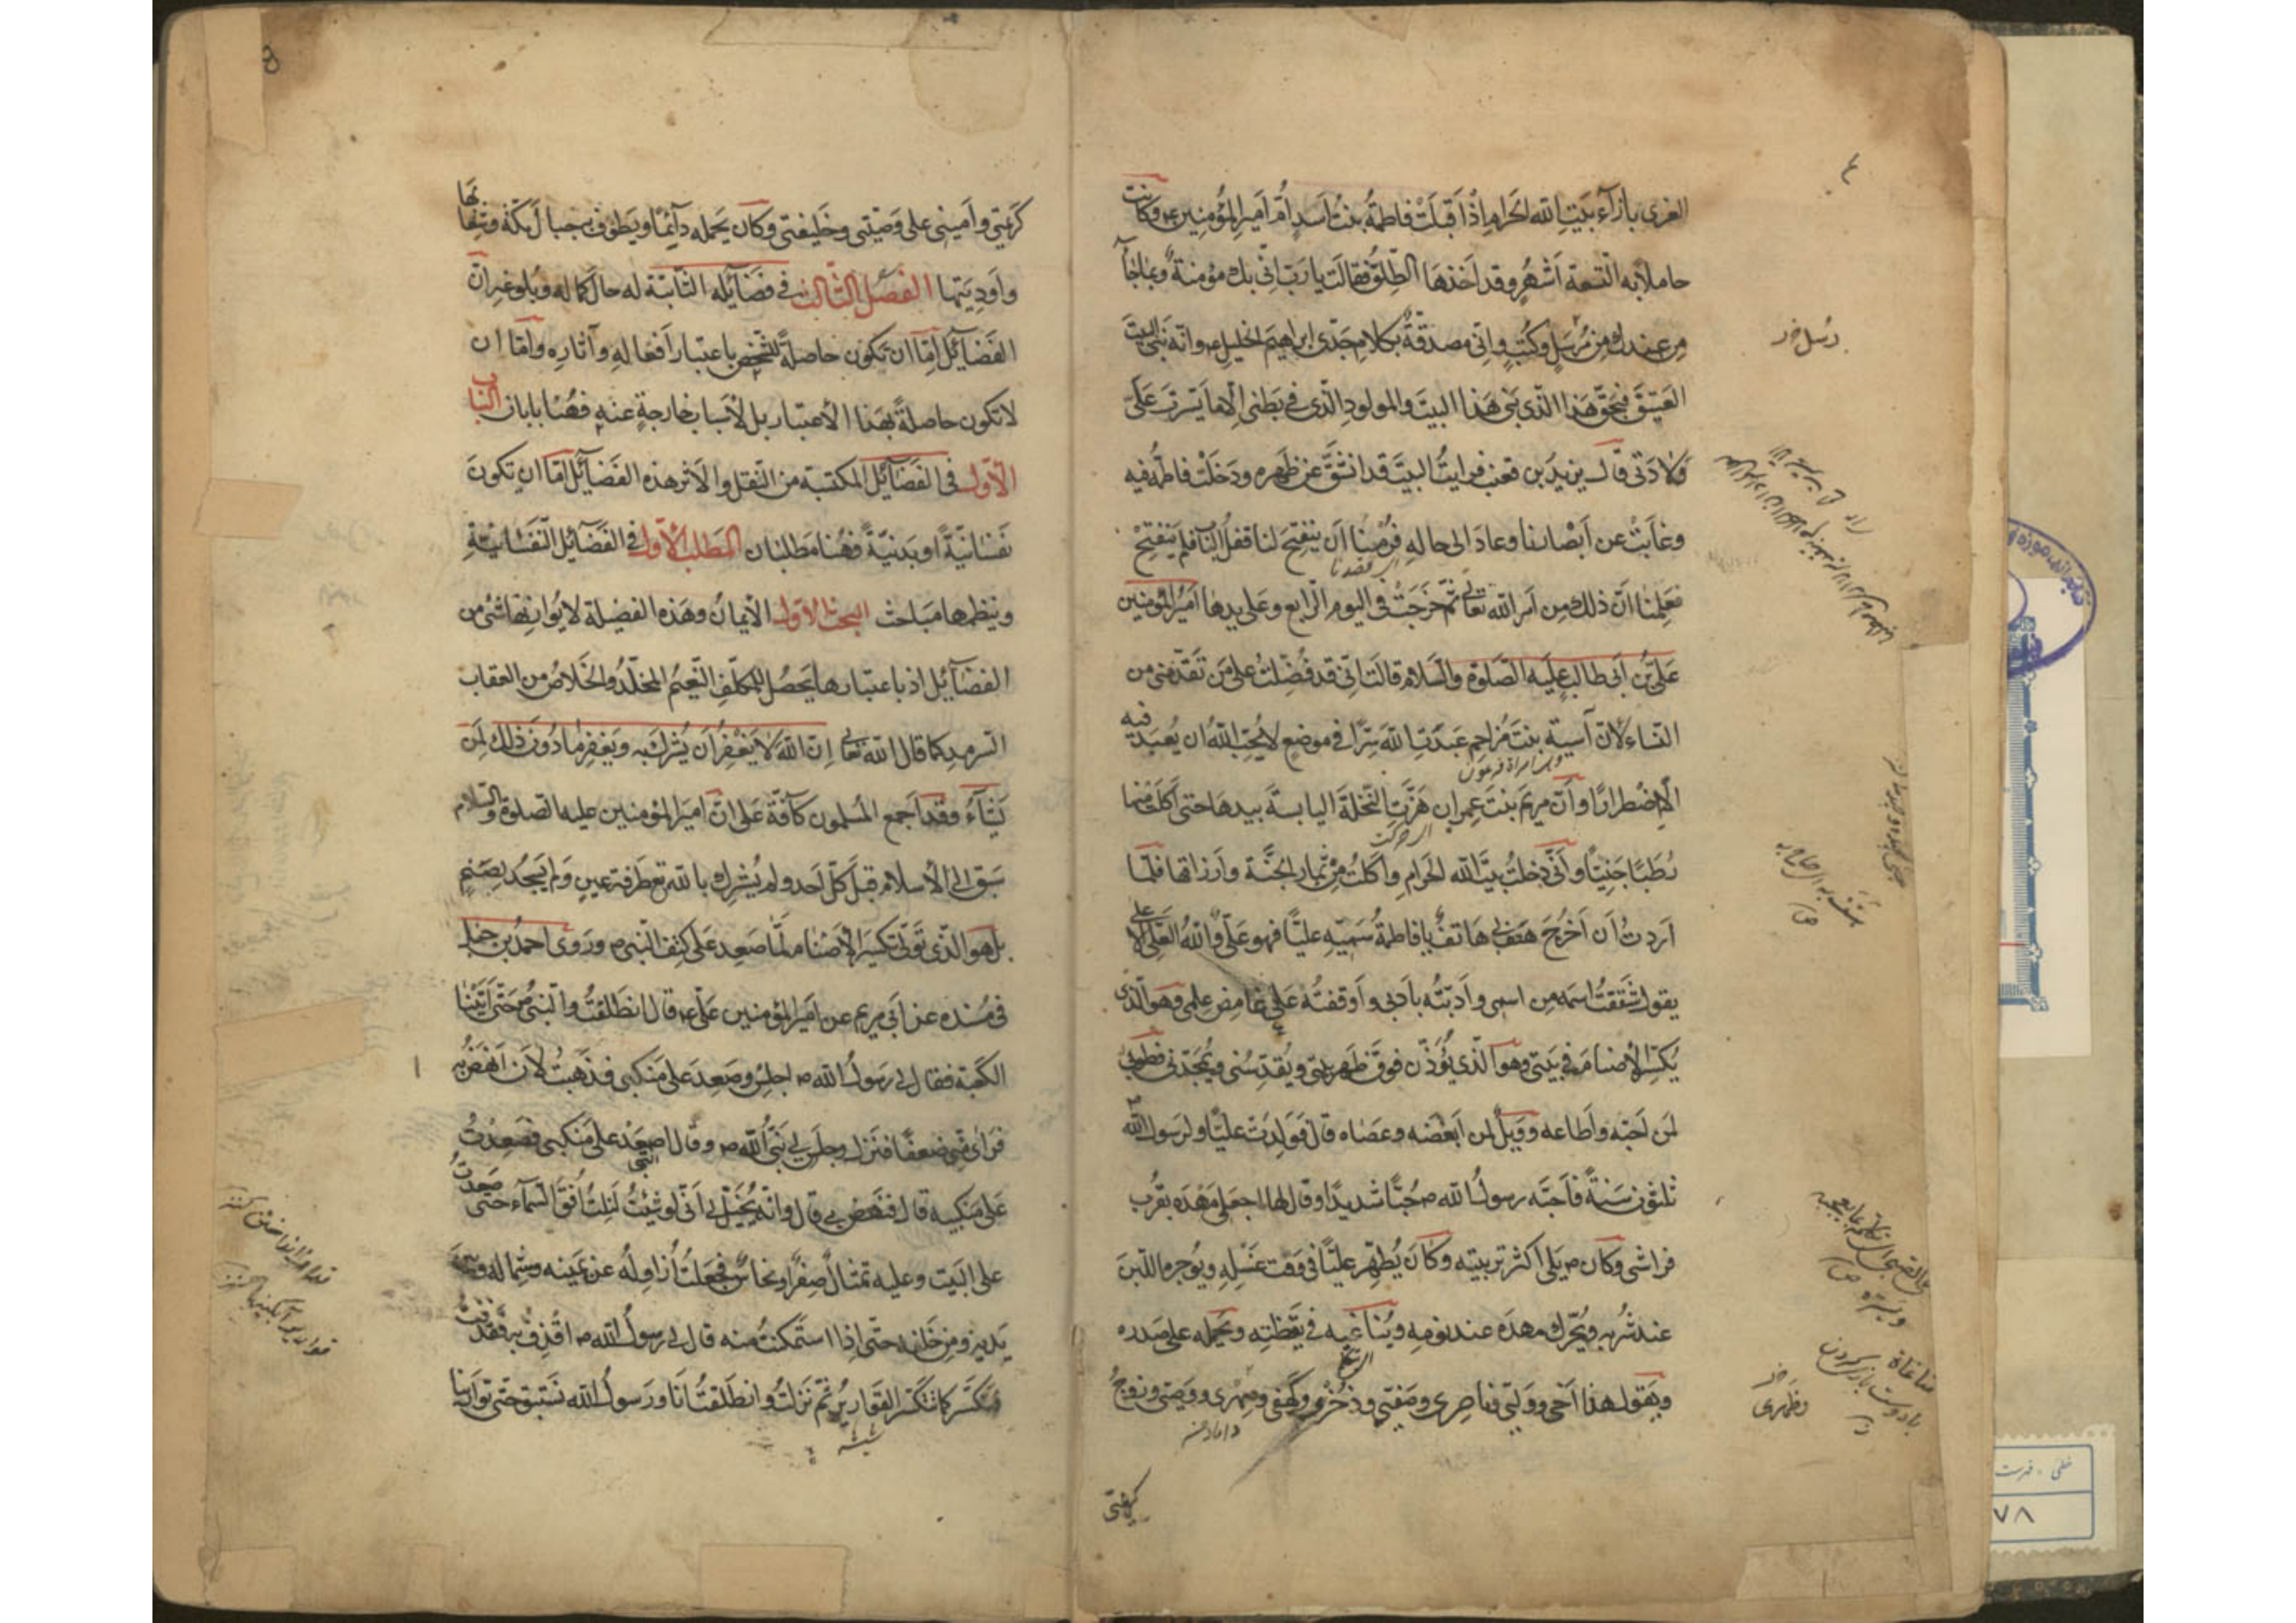 ٤
العزى بازآء بيت الله الحرام اذ اقبلت فاطمة بنت اسد ام امير المؤمنين ع وكانت
حاملا به لتسعة اشهر وقد اخذها الطلق فقالت يا رب انى بك مؤمنة وبما جآء
من عندك من رسل وكتب وانى مصدقة بكلام جدى ابراهيم الخليل ع وانه بنى البيت
العتيق فبحق هذا الذى بنى هذا البيت والمولود الذى فى بطنى الا ما يسرت على
ولادتى قال يزيد بن قعنب فرايت البيت قد انشق عن ظهره ودخلت فاطمة فيه
وغابت عن ابصارنا وعاد الى حاله فرمنا ان ينفتح لنا قفل الباب فلم ينفتح
فعلمنا ان ذلك من امر الله تعالى ثم خرجت فى اليوم الرابع وعلى يدها امير المؤمنين
على بن ابى طالب عليه الصلوة والسلام قالت انى قد فضلت على من تقدمنى من
النساء لان آسية بنت مزاحم عبدت الله سرا فى موضع لا يحب الله ان يعبد فيه
الا اضطرارا وان مريم بنت عمران هزت النخلة اليابسة بيدها حتى اكلت منها
رطبا جنيا وانى دخلت بيت الله الحرام واكلت من ثمار الجنة وارزاقها فلما
اردت ان اخرج هتف بى هاتف يا فاطمة سميه عليا فهو على والله العلى الاعلى
يقول شققت اسمه من اسمى وادبته بادبى واوقفته على غامض علمى وهو الذى
يكسر الاصنام فى بيتى وهو الذى يؤذن فوق ظهر بيتى ويقدسنى ويمجدنى فطوبى
لمن احبه واطاعه وويل لمن ابغضه وعصاه قال فولدت عليا ولرسول الله ص
ثلثون سنة فاحبه رسول الله ص حبا شديدا وقال لها اجعلى مهده بقرب
فراشى وكان ص يلى اكثر تربيته وكان يطهر عليا فى وقت غسله ويوجره اللبن
عند شربه ويحرك مهده عند نومه ويناغيه فى يقظته ويحمله على صدره
ويقول هذا اخى ووليى وناصرى وصفيى وذخرى وكهفى وصهرى ووصيى وزوج
كريمتى
رسل خ ر
اى قصدنا
وهى امراة فرعون
اى حركت
مناغاة
كريمتى وامينى على وصيتى وخليفتى وكان يحمله دآئما ويطوف به جبال مكة وشعابها
واوديتها الفصل الثالث فى فضآئله الثابتة له حال كماله وبلوغه ان
الفضآئل اما ان تكون حاصلة للشخص باعتبار افعاله وآثاره واما ان
لا تكون حاصلة بهذا الاعتبار بل لاسباب خارجة عنه فهنا بابان الباب
الاول فى الفضآئل المكتسبة من النقل والاثر هذه الفضآئل اما ان تكون
نفسانية او بدنية فهنا مطلبان المطلب الاول فى الفضآئل النفسانية
وينظمها مباحث البحث الاول الايمان وهذه الفضيلة لا يوازيها شئ من
الفضآئل اذ باعتبارها يحصل للمكلف النعيم المخلد والخلاص من العقاب
السرمد كما قال الله تعالى ان الله لا يغفر ان يشرك به ويغفر ما دون ذلك لمن
يشآء وقد اجمع المسلمون كآفة على ان امير المؤمنين عليه الصلوة والسلام
سبق الى الاسلام قبل كل احد ولم يشرك بالله تع طرفة عين ولم يسجد لصنم
بل هو الذى تولى تكسير الاصنام لما صعد على كتف النبى ص وروى احمد بن حنبل
فى مسنده عن ابى مريم عن امير المؤمنين على ع قال انطلقت والنبى ص حتى اتينا
الكعبة فقال لى رسول الله ص اجلس وصعد على منكبى فذهبت لان انهض به
فراى منى ضعفا فنزل وجلس لى نبى الله ص وقال اصعد على منكبى فصعدت
على منكبيه قال فنهض بى قال وانه يخيل لى انى لو شئت لنلت افق السمآء حتى صعدت
على البيت وعليه تمثال صفر او نحاس فجعلت ازاوله عن يمينه وشماله وبين
يديه ومن خلفه حتى اذا استمكنت منه قال لى رسول الله ص اقذف به فقذفت
فتكسر كما تنكسر القوارير ثم نزلت وانطلقت انا ورسول الله نستبق حتى توارينا
شيشه
خطى - فهرست
٧٨